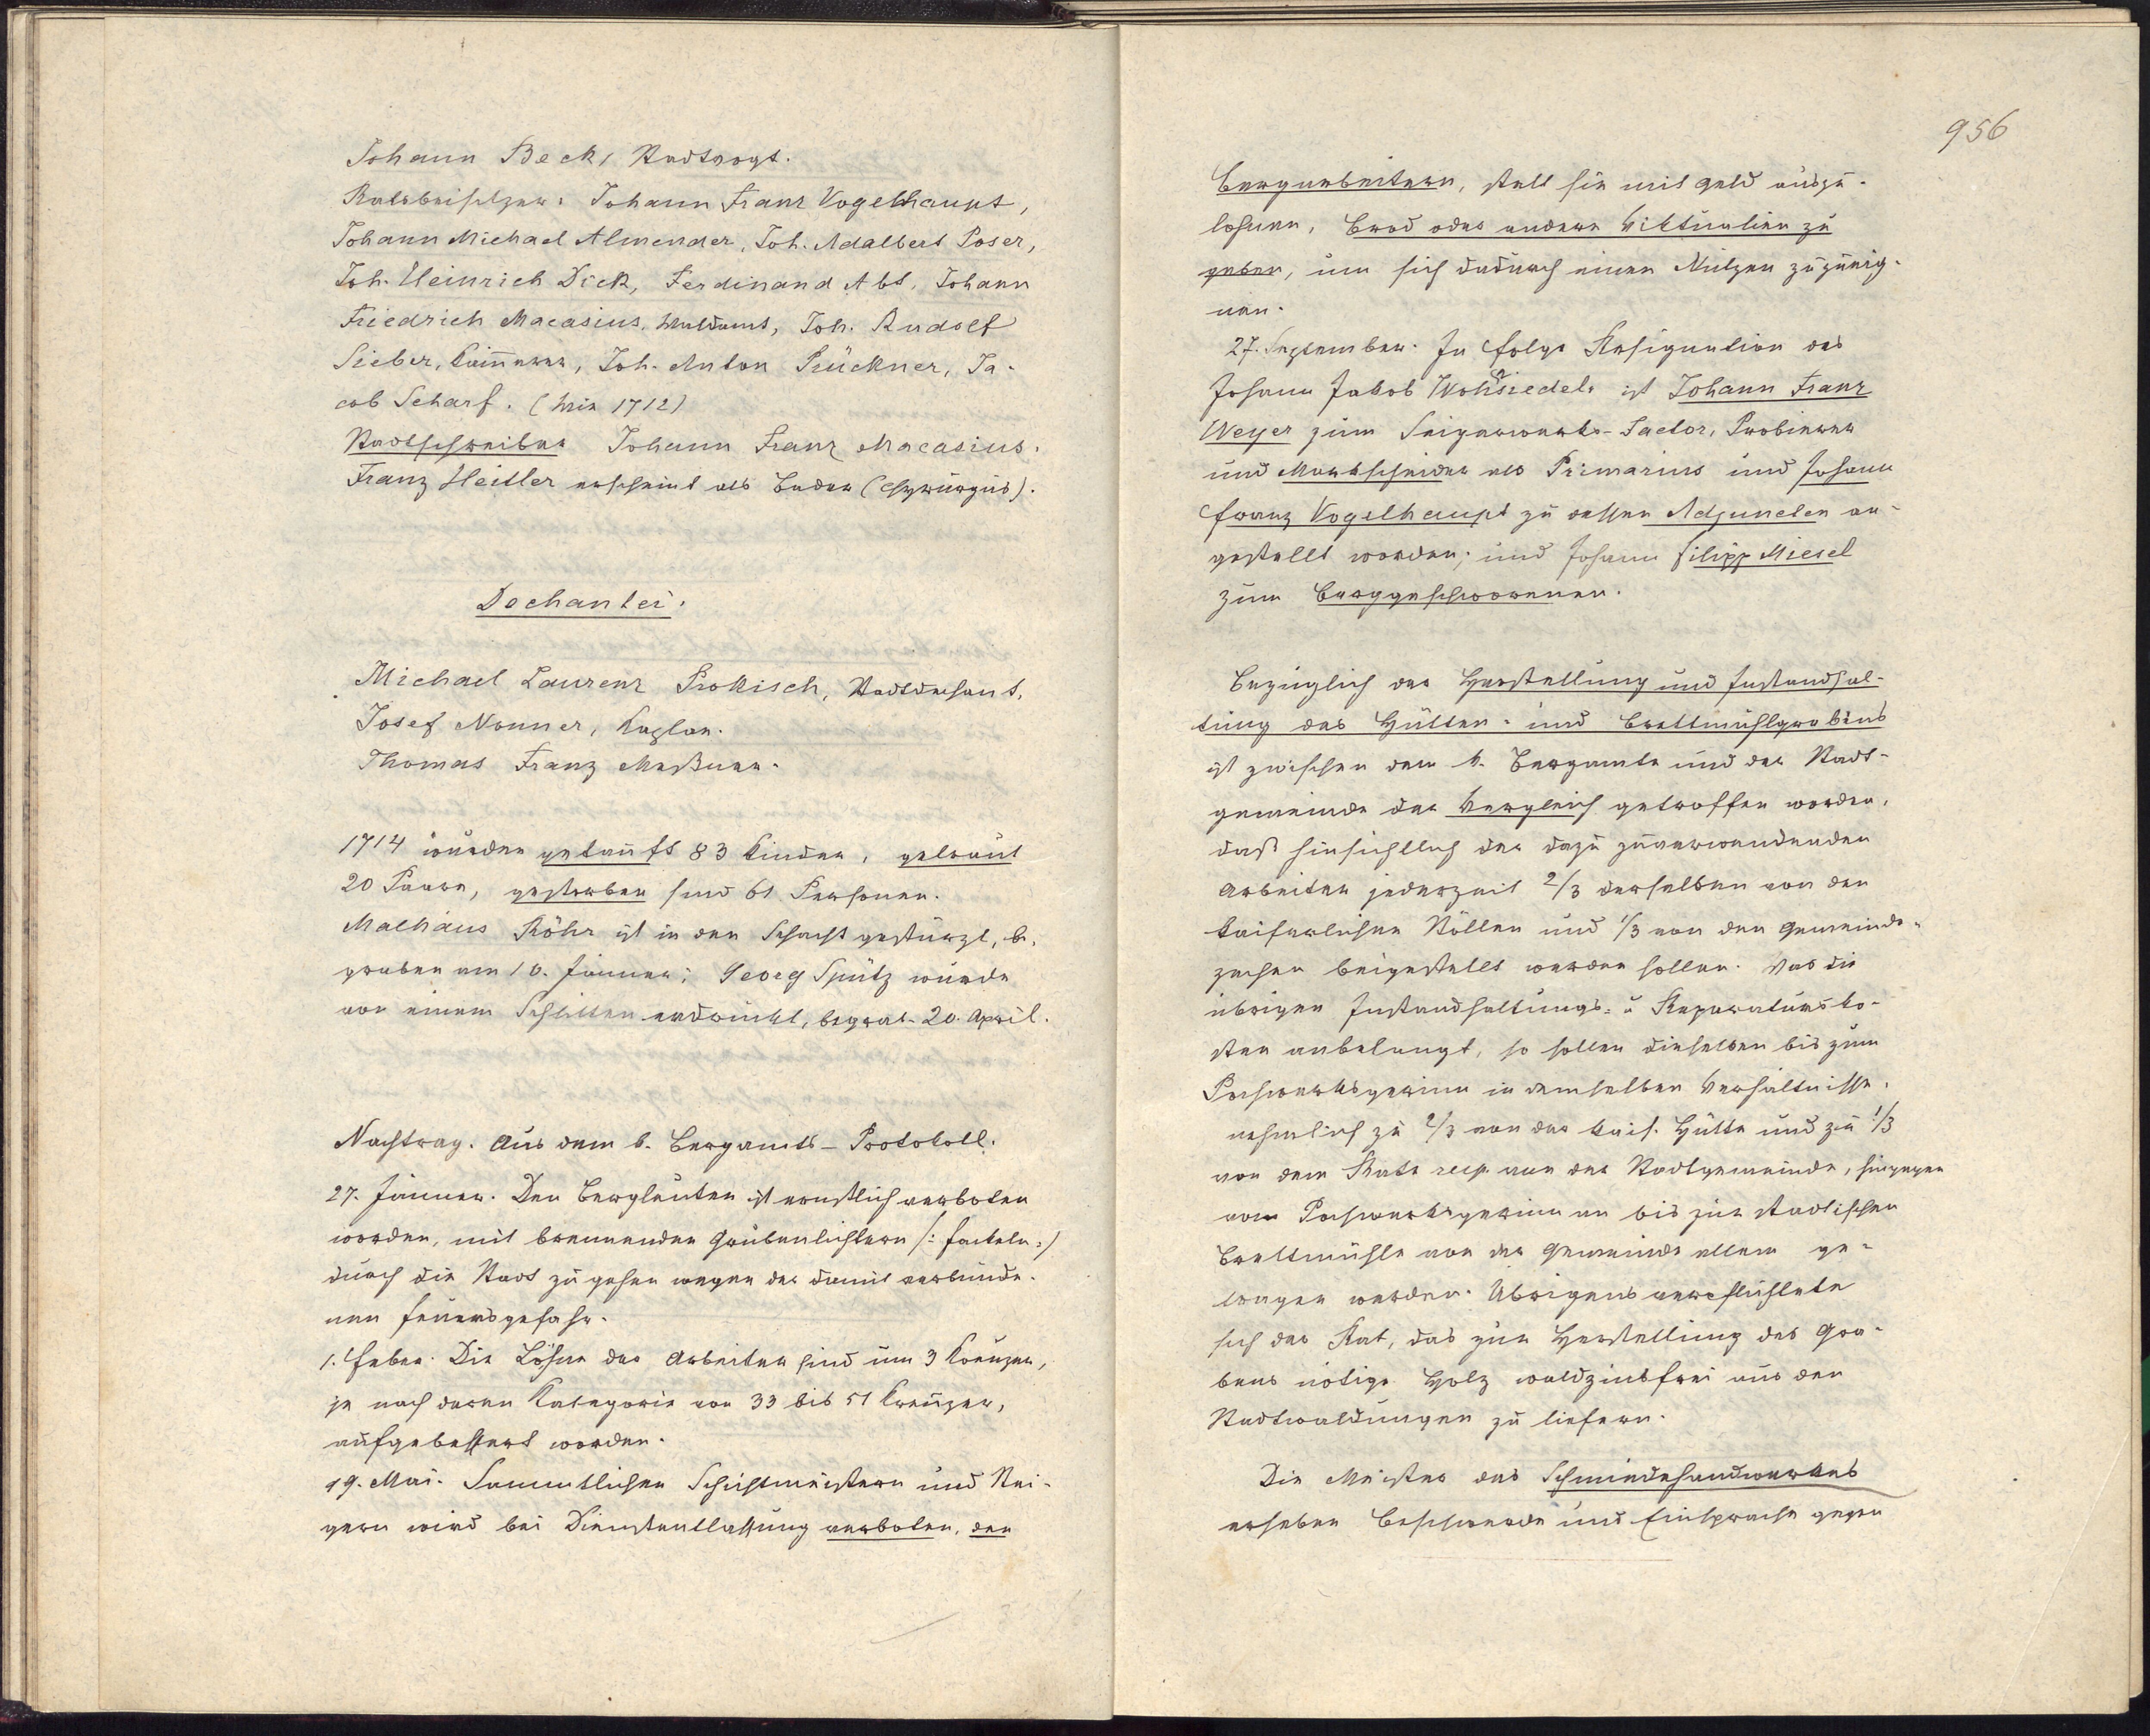 Johann Beck, Stadtvogt.
Ratsbeisitzer: Johann Franz Vogelhaupt,
Johann Michael Almender, Joh. Adalbert Poser,
Joh. Heinrich Dick, Ferdinand Abt, Johann
Friedrich Macasius, Waldamt, Joh. Rudolf
Sieber, Kaim̅erer, Joh. Anton Prückner, Ja-
cob Scharf. (wie 1712)
Stadtschreiber Johann Franz Macasius.
Franz Heitler erscheint als Bader (Chyrurgus).
Dechantei.
Michael Laurenz Prokisch, Stadtdechant,
Josef Nonner, Kaplan.
Thomas Franz Meßner.
1714 wurden getauft 83 Kinder, getraut
20 Paare, gestorben sind 61 Personen.
Mathäus Röhr ist in den Schacht gestürzt, be-
graben am 10. Jänner; Georg Spütz wurde
von einem Schlitten erdrückt, begrab. 20. April.
Nachtrag. Aus dem k. Bergamts-Protokoll.
27. Jänner. Den Bergleuten ist ernstlich verboten
worden, mit brennenden Grubenlichtern /: Fackeln :/
durch die Stadt zu gehen wegen der damit verbunde-
nen Feuersgefahr.
1. Feber. Die Löhne der Arbeiter sind um 3 Kreuzer,
je nach deren Kategorie von 33 bis 51 Kreuzer,
aufgebessert worden.
19. Mai. Sämmtlichen Schichtmeistern und Stei-
gern wird bei Dienstentlassung verboten, den
956
Bergarbeitern, statt sie mit Geld auszu-
lohnen, Brod oder andere Viktualien zu
geben, um sich dadurch einen Nutzen zuzueig-
nen.
27. September. In Folge Resignation des
Johann Jakob Wohnsiedel ist Johann Franz
Weyer zum Seigerwerks-Factor, Probierer
und Markscheider als Primarius und Johann
Franz Vogelhaupt zu dessen Adjuncten an-
gestellt worden; und Johann Filipp Miesel
zum Berggeschworenen.
Bezüglich der Herstellung und Instandhal-
tung des Hütten- und Brettmühlgrabens
ist zwischen dem k. Bergamte und der Stadt-
gemeinde der Vergleich getroffen worden,
daß hinsichtlich der dazu zuverwendenden
Arbeiter jederzeit 2/3 derselben von den
kaiserlichen Stöllen und 1/3 von den Gemeinde-
zechen beigestellt werden sollen. Was die
übrigen Instandhaltungs- u Reparatursko-
sten anbelangt, so sollen dieselben bis zum
Pochwerksgerinn in demselben Verhältnisse,
nehmlich zu 2/3 von der kais. Hütte und zu 1/3
von dem Rate resp. von der Stadtgemeinde, hingegen
vom Pochwerksgerinn an bis zur stadtischen
Brettmühle von der Gemeinde allein ge-
tragen werden. Übrigens verpflichtete
sich der Rat, das zur Herstellung des Gra-
bens nötige Holz waldzinsfrei aus den
Stadtwaldungen zu liefern.
Die Meister des Schmiedehandwerkes
erheben Beschwerde und Einsprache gegen